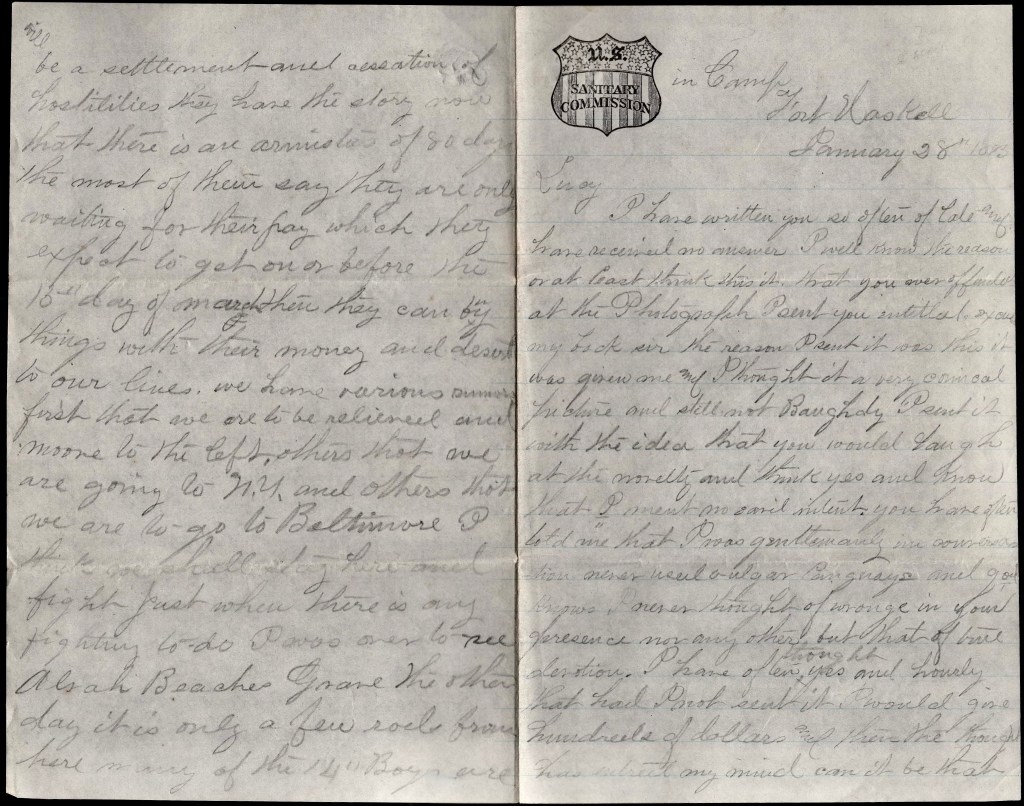 will
be a settlement and cessation of
hostilities they have the story now
that there is an armistice of 80 days
the most of them say they are only
waiting for their pay which they
expect to get on or before the
15th day of march then they can by
things with their money and desert
to our lines. we have various rumors
first that we are to be relieved and
moove to the left, others that we
are going to N.Y. and others that
we are to go to Baltimore I
think we shall stay here and
fight just when there is any
fighting to do I was over to see
Beaches Grave the other
day it is only a few rods from
here many of the 14th Boys are
U.S.
SANITARY
COMMISSION
in Camp
Fort Haskell
January 28th 1865
Lucy
I have written you so often of late and
have received no answer I well know the reason
or at least think this it. that you wer offended
at the Photograph I sent you entitled. excuse
my back sir the reason I sent it was this it
was given me and I thought it a very comical
picture and still not Baughdy I sent it
with the idea that you would Laugh
at the novelty and think yes and know
that I ment no evil intent. you have often
told me that I was gentlemanly in conversa
tion never used vulgar languaye and god
knows I never thought of wronge in your
presence nor any other. but that of true
devotion. I have often thought yes and hourly
that had I not sent it I would give
hundreds of dollars and then the thought
has entred my mind can it be that